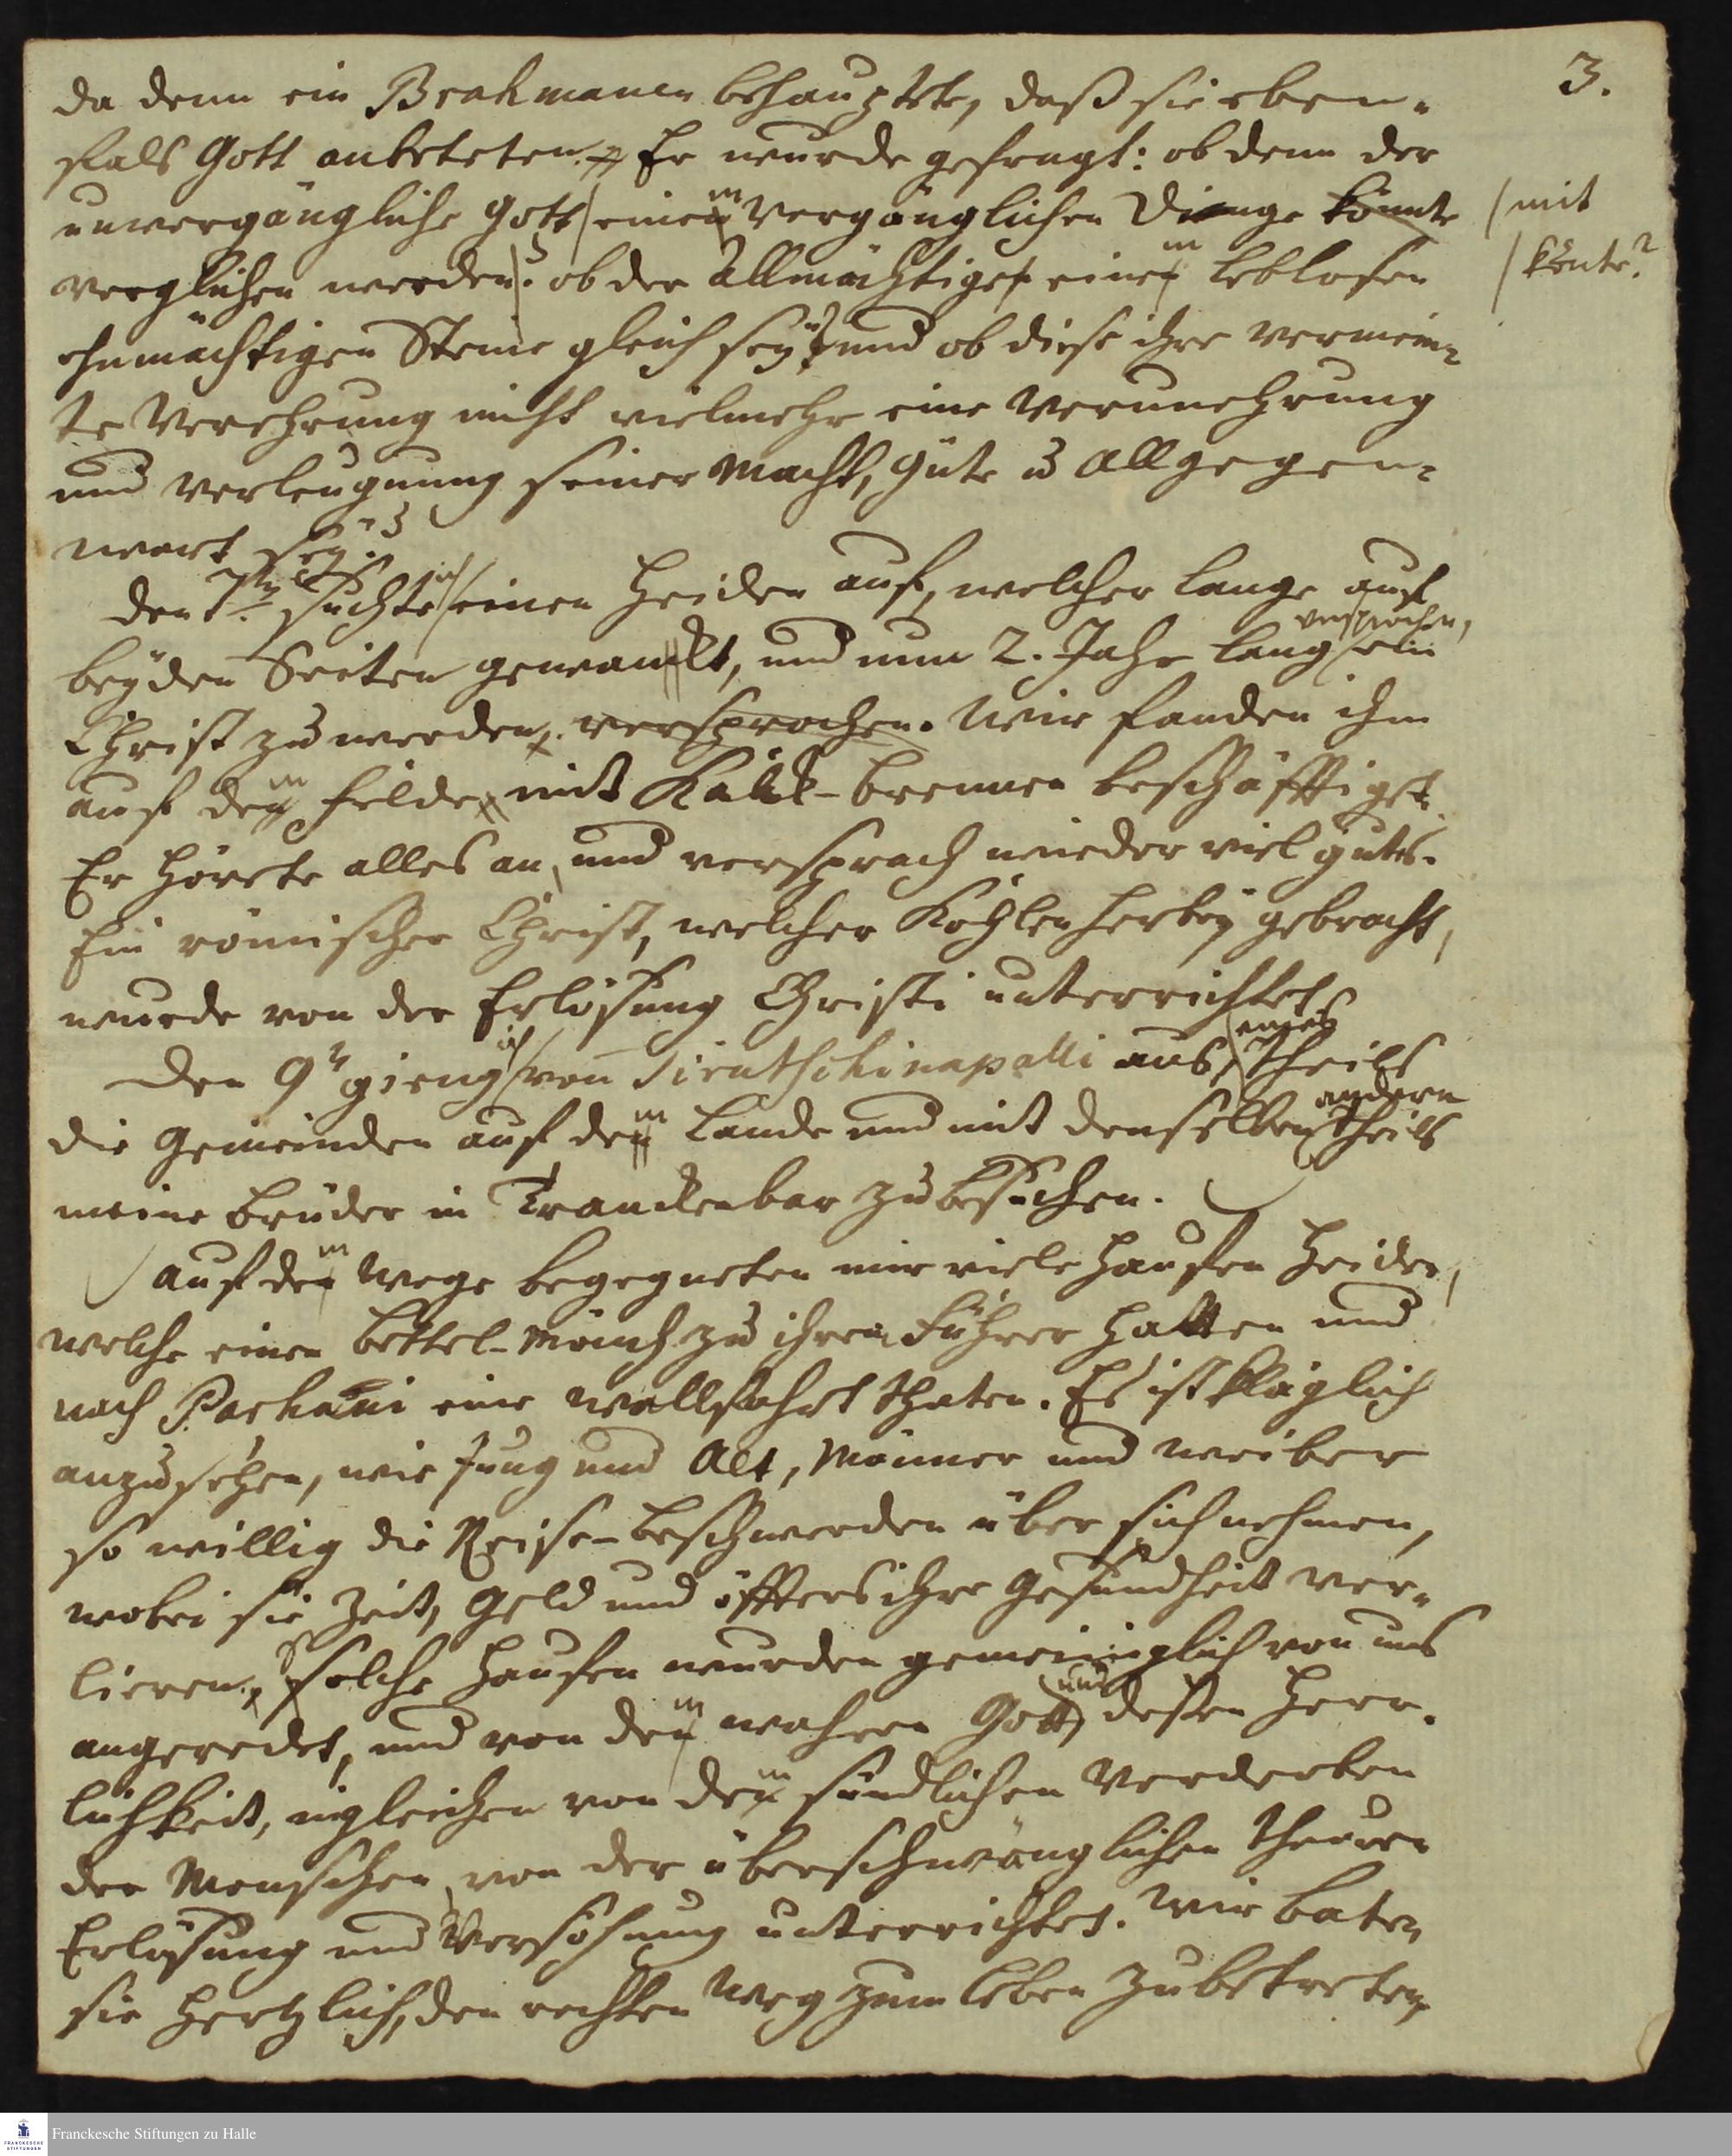 3.
da denn ein Brahmaner behauptete, daß sie eben-
fals Gott anbeteten. Er wurde gefragt: ob denn der
unvergängliche Gott / einem vergänglichen Dinge könte / mit
verglichen werden? ob der Allmächtige einem leblosen / könte?
ohnmächtigen Steine gleich seÿ? und ob diese ihre vermein-
te Verehrung nicht vielmehr eine Verunehrung
und Verleugnung seiner Macht, Güte u Allgegen-
wart seÿ?
Den 7ten suchte ich einen Heiden auf, welcher lange auf
versprochen,
beÿden Seiten gewanckt, und nun 2. Jahr lang ein
Christ zu werden versprochen. Wir fanden ihn
auf dem Felde mit Kalck-brennen beschäfftiget.
Er hörete alles an, und versprach wieder viel gutes.
Ein römischer Christ, welcher Kohlen herbeÿ gebracht,
wurde von der Erlösung Christi unterrichtet.
eines
Den 9n gieng ich von Tirutschinapalli aus, theils
andern
die Gemeinden auf dem Lande und mit denselben theils
meine Brüder in Tranckenbar zu besuchen.
Auf dem Wege begegneten mir viele Haufen Heiden,
welche einen Bettel-Mönch zu ihren Führer hatten und
nach Parhani eine Wallfahrt thaten. Es ist kläglich
anzusehen, wie Jung und Alt, Männer und Weiber
so willig die Reise-beschwerden über sich nehmen,
wobei sie Zeit, Geld und öffters ihre Gesundheit ver-
lieren. Solche Haufen wurden gemeiniglich von uns
angeredet, und von dem wahren Gott und deßen Herr-
lichkeit, ingleichen von dem sündlichen Verderben
der Menschen, von der überschwänglichen theuren
Erlösung und Versöhnung unterrichtet. Wir baten
sie hertzlich, den rechten Weg zum Leben zu betreten,
Franckesche Stiftungen zu Halle